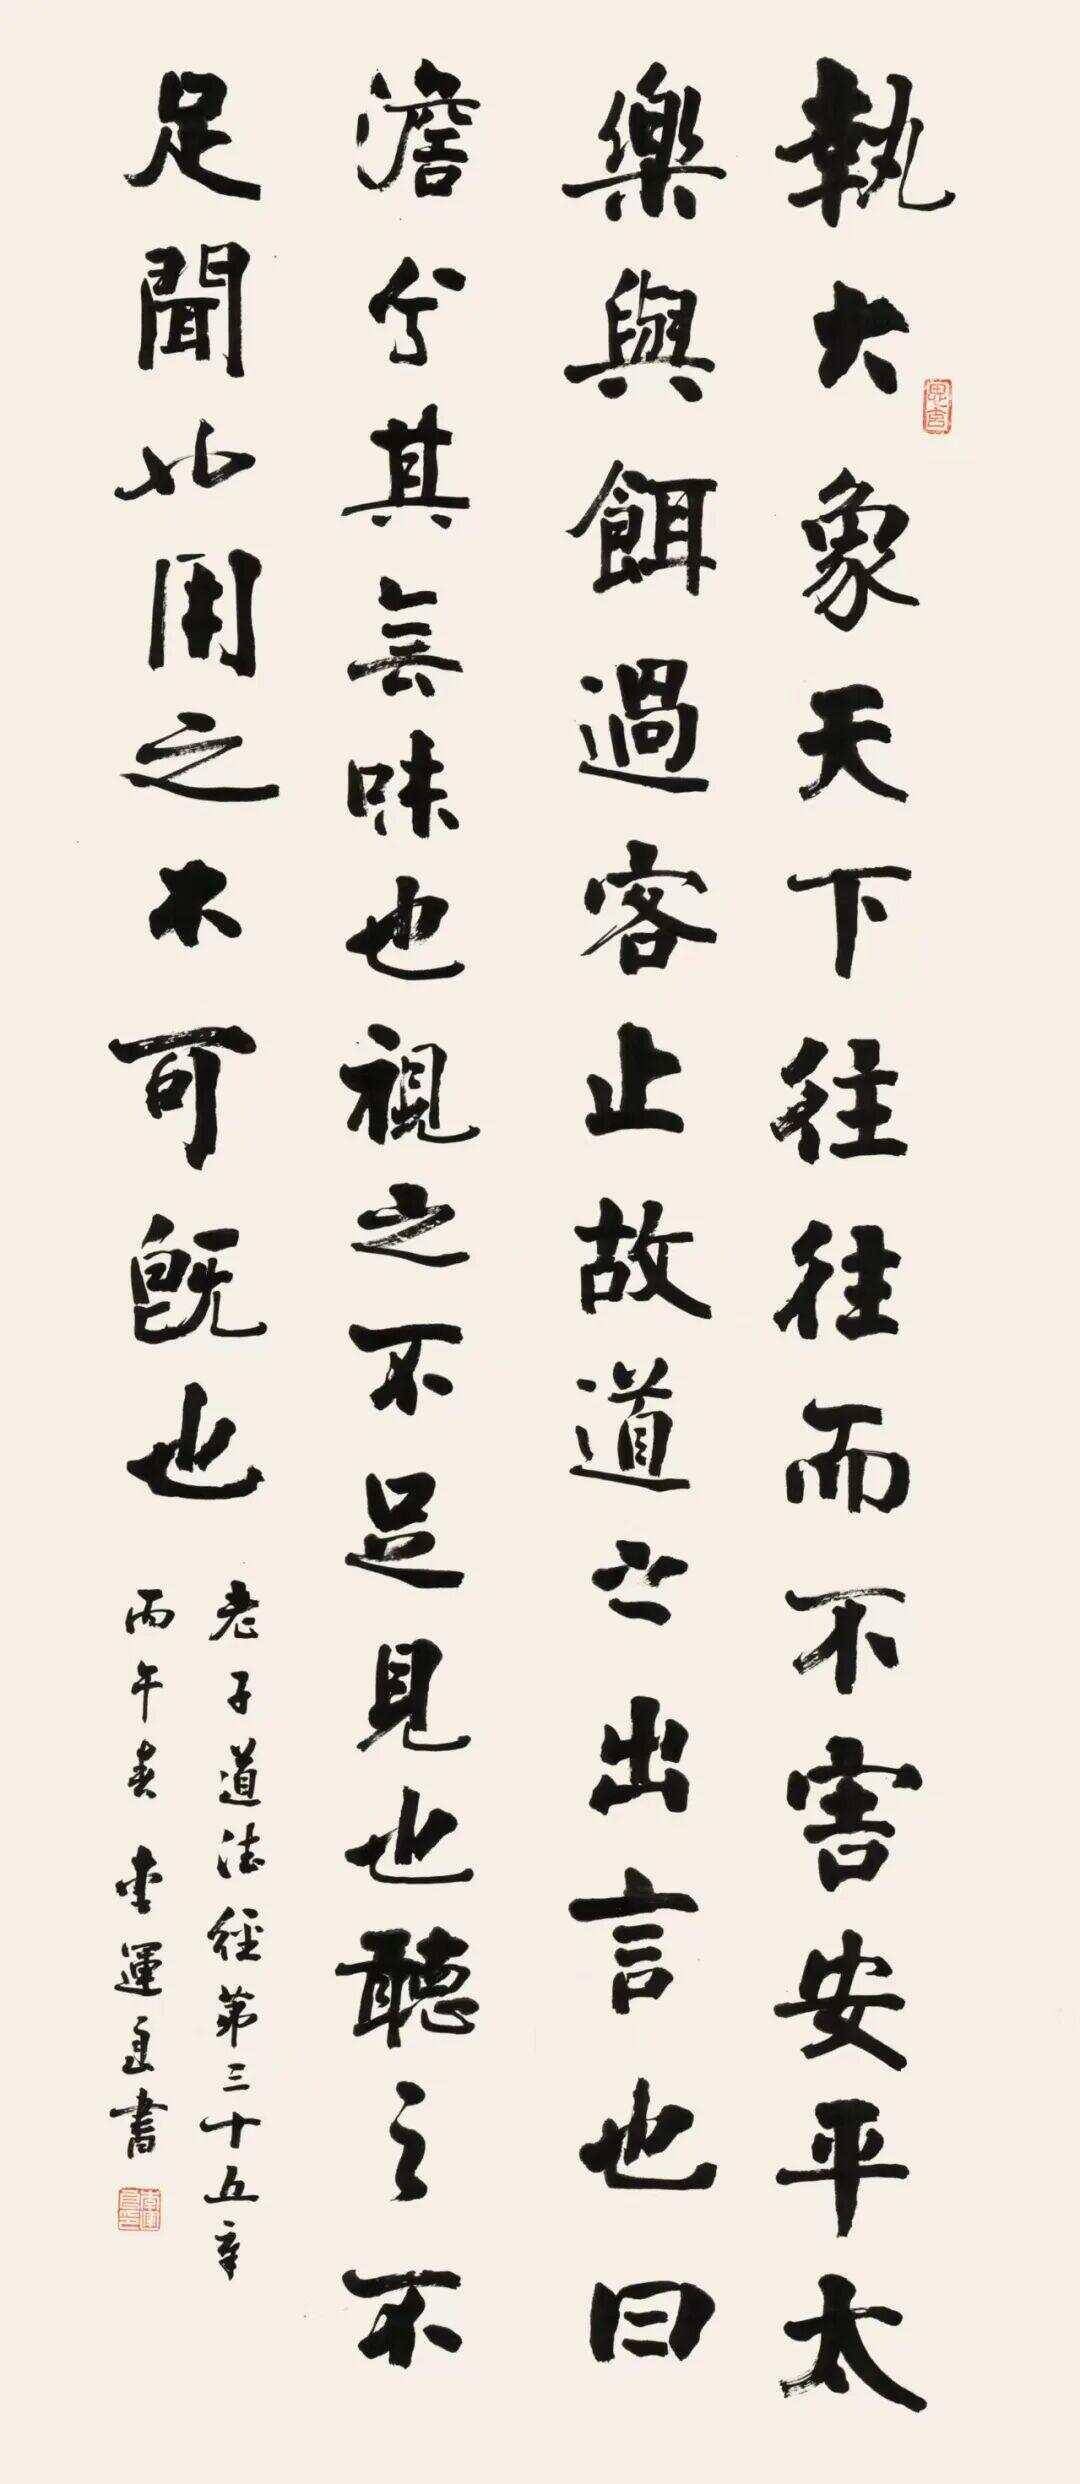 執大象天下往往而不害安平太
樂與餌過客止故道之出言也曰
澹兮其無味也視之不足見也聽之不
足聞也用之不可既也
老子道法經第三十五章
丙午春李運良書